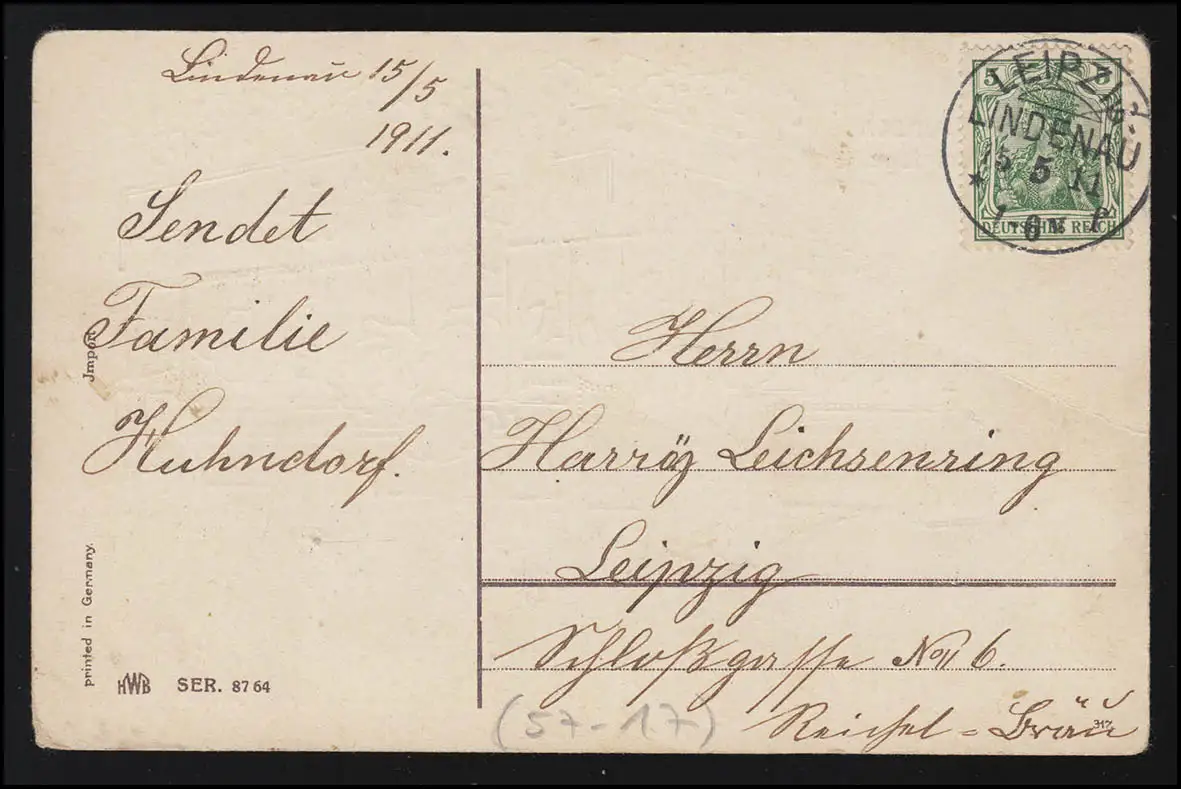 Lindenau 15/5
1911.
Sendet
Familie
Kuhndorf.
Import
printed in Germany.
HWB SER. 8764
5
DEUTSCHES REICH
LEIPZIG-
LINDENAU
15 5 11
Herrn
Harrÿ Leichsenring
Leipzig
Schloßgasse No 6.
Reichel = Bräu
317
(57-17)